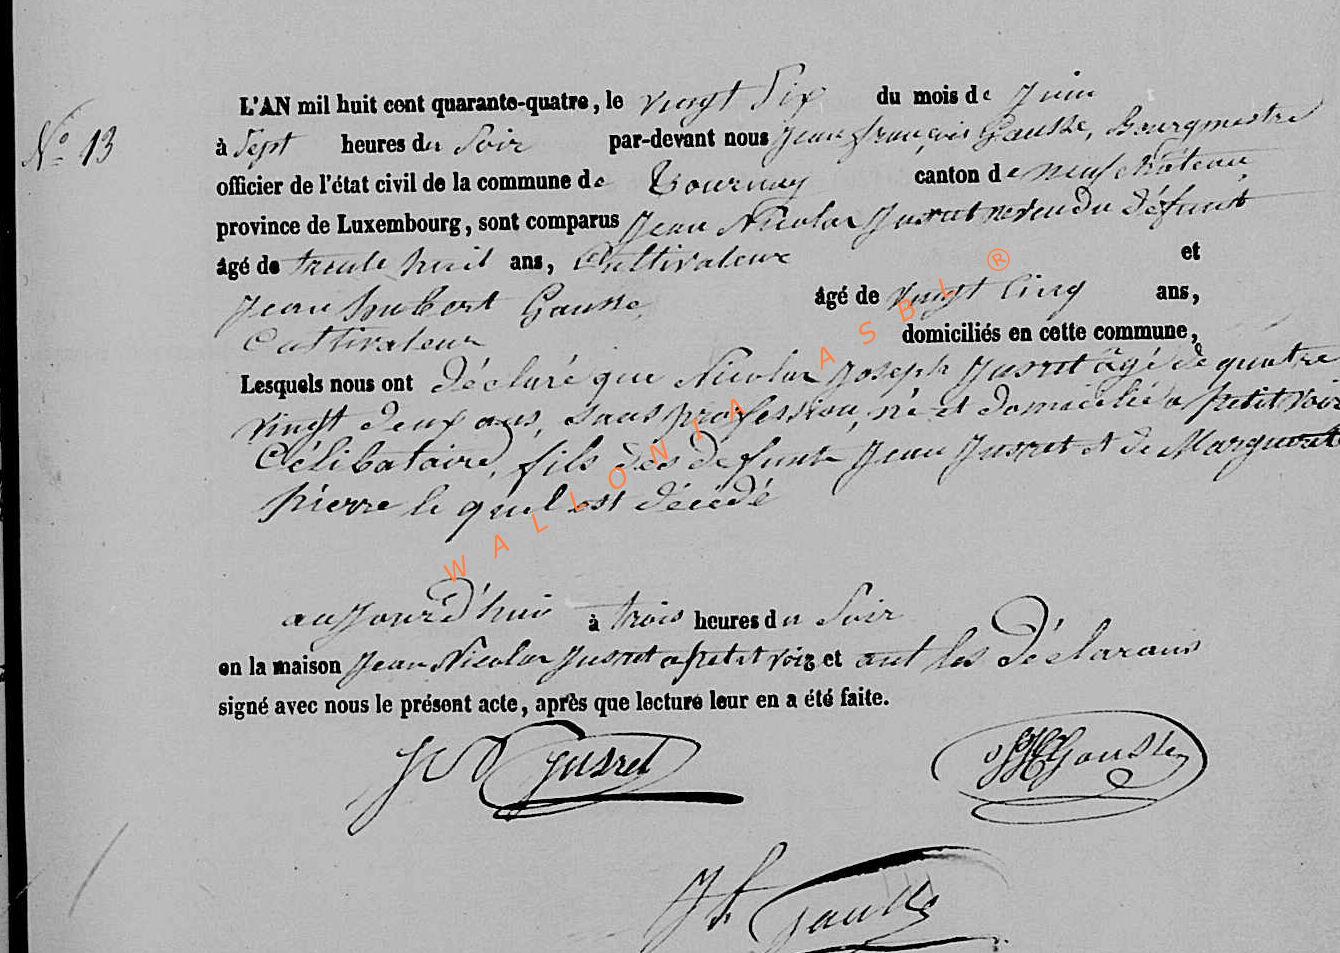 N° 13
L'AN mil huit cent quarante-quatre, le vingt Six du mois de Juin
à Sept heures du Soir par-devant nous Jean françois Gausse, Bourgmestre
officier de l'état civil de la commune de Tournay canton de neufchâteau,
province de Luxembourg, sont comparus Jean Nicolas Jusret neveu du Défunt
âgé de trente huit ans, Cultivateur et
Jean hubert Gausse, âgé de vingt Cinq ans,
Cultivateur domiciliés en cette commune,
Lesquels nous ont déclaré que Nicolas Joseph Jusret âgé de quatre
vingt deux ans, sans profession, né et domicilié a petitvoir
Célibataire, fils des Defunts Jean Jusret et de Marguerite
pierre le quel est décédé
aujourd'hui à trois heures du Soir
en la maison Jean Nicolas Jusret a petit voir et ont les Déclarans
signé avec nous le présent acte, après que lecture leur en a été faite.
JN Jusret
JH Gausse
Jf Gausse
WALLONIA ASBL ®